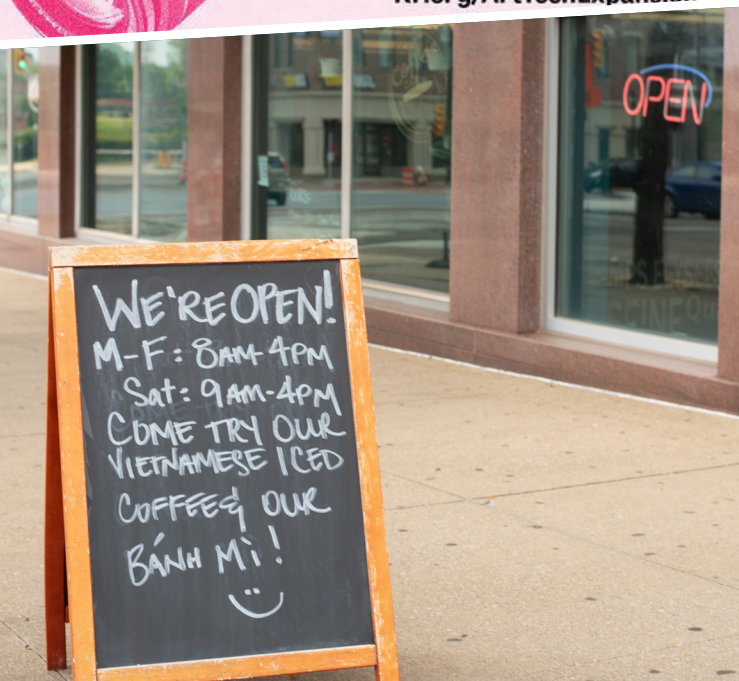 OPEN
WE'RE OPEN!
M-F: 8AM-4PM
Sat: 9AM-4PM
COME TRY OUR
VIETNAMESE ICED
COFFEE & OUR
BÁNH MÌ!